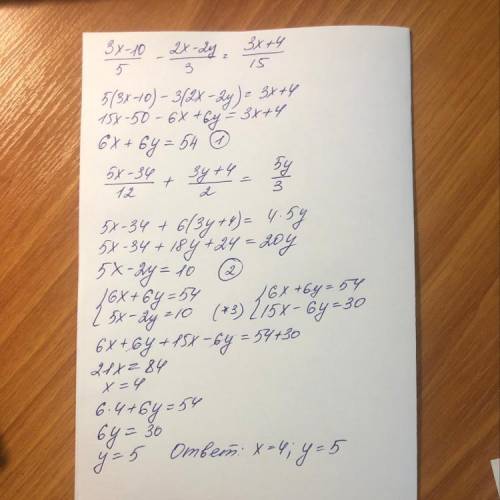 (3x-10)/5 - (2x-2y)/3 = (3x+4)/15
5(3x-10)-3(2x-2y)=3x+4
15x-50-6x+6y=3x+4
6x+6y=54 ①
(5x-34)/12 + (3y+4)/2 = 5y/3
5x-34+6(3y+4)=4·5y
5x-34+18y+24=20y
5x-2y=10 ②
{6x+6y=54 {6x+6y=54
{5x-2y=10 (*3) {15x-6y=30
6x+6y+15x-6y=54+30
21x=84
x=4
6·4+6y=54
6y=30
y=5 Ответ: x=4; y=5